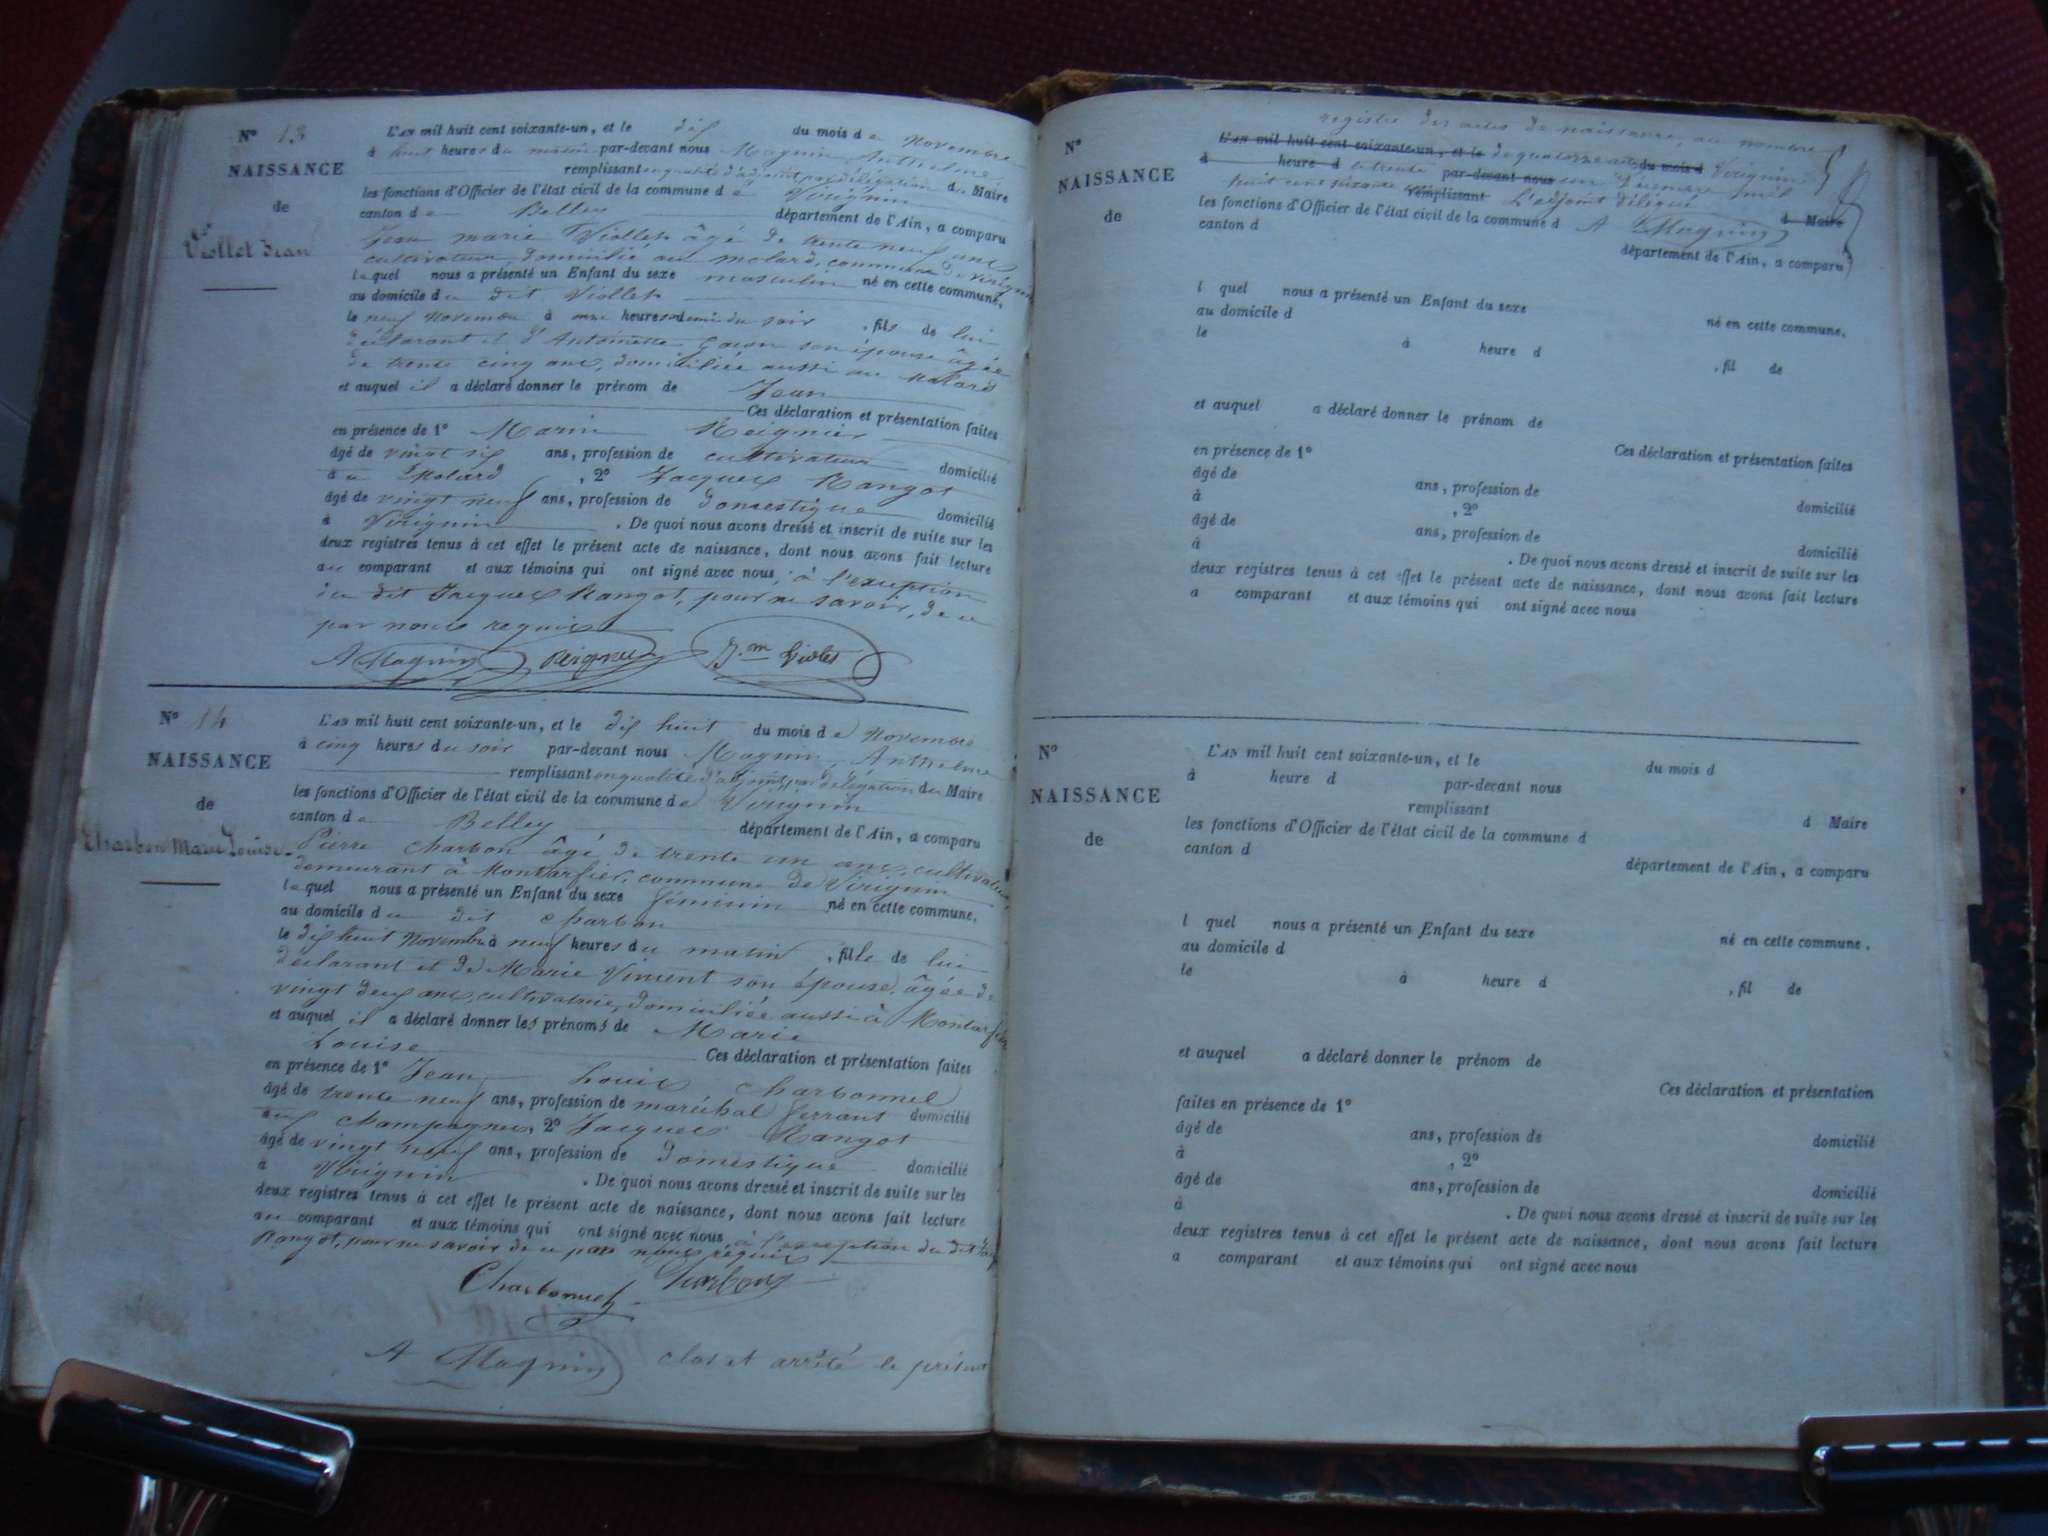 N° 13
NAISSANCE
de
Viollet Jean
L'AN mil huit cent soixante-un, et le dix du mois de Novembre
à huit heures du matin par-devant nous Magnin, Anthelme,
remplissant en qualité d'adjoint par délégation du Maire
les fonctions d'Officier de l'état civil de la commune de Virignin
canton de Belley département de l'Ain, a comparu
Jean marie Viollet âgé de trente neuf ans
cultivateur, domicilié au molard, commune de Virignin
lequel nous a présenté un Enfant du sexe masculin né en cette commune,
au domicile du dit Viollet
le neuf Novembre à onze heures et demie du soir, fils de lui
déclarant et d'Antoinette son épouse âgée
de trente cinq ans, domiciliée aussi au Molard
et auquel il a déclaré donner le prénom de Jean
Ces déclaration et présentation faites
en présence de 1° Marin Reignier
âgé de vingt six ans, profession de cultivateur domicilié
au Molard, 2° Jacques Rangot
âgé de vingt neuf ans, profession de domestique domicilié
à Virignin. De quoi nous avons dressé et inscrit de suite sur les
deux registres tenus à cet effet le présent acte de naissance, dont nous avons fait lecture
au comparant et aux témoins qui ont signé avec nous, à l'exception
du dit Jacques Rangot, pour ne savoir, de ce
par nous requis
A Magnin Reignier J. m Violet
N° 14
NAISSANCE
de
Charbon Marie Louise
L'AN mil huit cent soixante-un, et le dix huit du mois de Novembre
à cinq heures du soir par-devant nous Magnin, Anthelme
remplissant en qualité d'adjoint par délégation du Maire
les fonctions d'Officier de l'état civil de la commune de Virignin
canton de Belley département de l'Ain, a comparu
Pierre Charbon âgé de trente un ans, cultivateur
demeurant à Montarfier, commune de Virignin
lequel nous a présenté un Enfant du sexe féminin né en cette commune,
au domicile du dit charbon
le dix huit Novembre à neuf heures du matin, fille de lui
déclarant et de Marie Vincent son épouse, âgée de
vingt deux ans, cultivatrice, domiciliée aussi à Montarfier
et auquel il a déclaré donner les prénoms de Marie
Louise Ces déclaration et présentation faites
en présence de 1° Jean Louis Charbonnel
âgé de trente neuf ans, profession de maréchal ferrant domicilié
aux champagnes, 2° Jacques Rangot
âgé de vingt neuf ans, profession de domestique domicilié
à Virignin. De quoi nous avons dressé et inscrit de suite sur les
deux registres tenus à cet effet le présent acte de naissance, dont nous avons fait lecture
au comparant et aux témoins qui ont signé avec nous, à l'exception du dit
Rangot, pour ne savoir de ce par nous requis
Charbonnel Charbon
A Magnin clos et arrêté le présent
registre des actes de naissance, au nombre
N°
NAISSANCE
de
L'AN mil huit cent soixante-un, et le de quatorze du mois d Virignin
à heure d le trente par-devant nous un Décembre mil
huit cent soixante remplissant L'adjoint délégué d Maire
les fonctions d'Officier de l'état civil de la commune d A Magnin
canton d département de l'Ain, a comparu
l quel nous a présenté un Enfant du sexe né en cette commune.
au domicile d
le à heure d , fil de
et auquel a déclaré donner le prénom de
Ces déclaration et présentation faites
en présence de 1°
âgé de ans, profession de domicilié
à , 2°
âgé de ans, profession de domicilié
à . De quoi nous avons dressé et inscrit de suite sur les
deux registres tenus à cet effet le présent acte de naissance, dont nous avons fait lecture
a comparant et aux témoins qui ont signé avec nous
N°
NAISSANCE
de
L'AN mil huit cent soixante-un, et le du mois d
à heure d par-devant nous
remplissant d Maire
les fonctions d'Officier de l'état civil de la commune d
canton d département de l'Ain, a comparu
l quel nous a présenté un Enfant du sexe né en cette commune.
au domicile d
le à heure d , fil de
et auquel a déclaré donner le prénom de
Ces déclaration et présentation
faites en présence de 1°
âgé de ans, profession de domicilié
à , 2°
âgé de ans, profession de domicilié
à . De quoi nous avons dressé et inscrit de suite sur les
deux registres tenus à cet effet le présent acte de naissance, dont nous avons fait lecture
a comparant et aux témoins qui ont signé avec nous